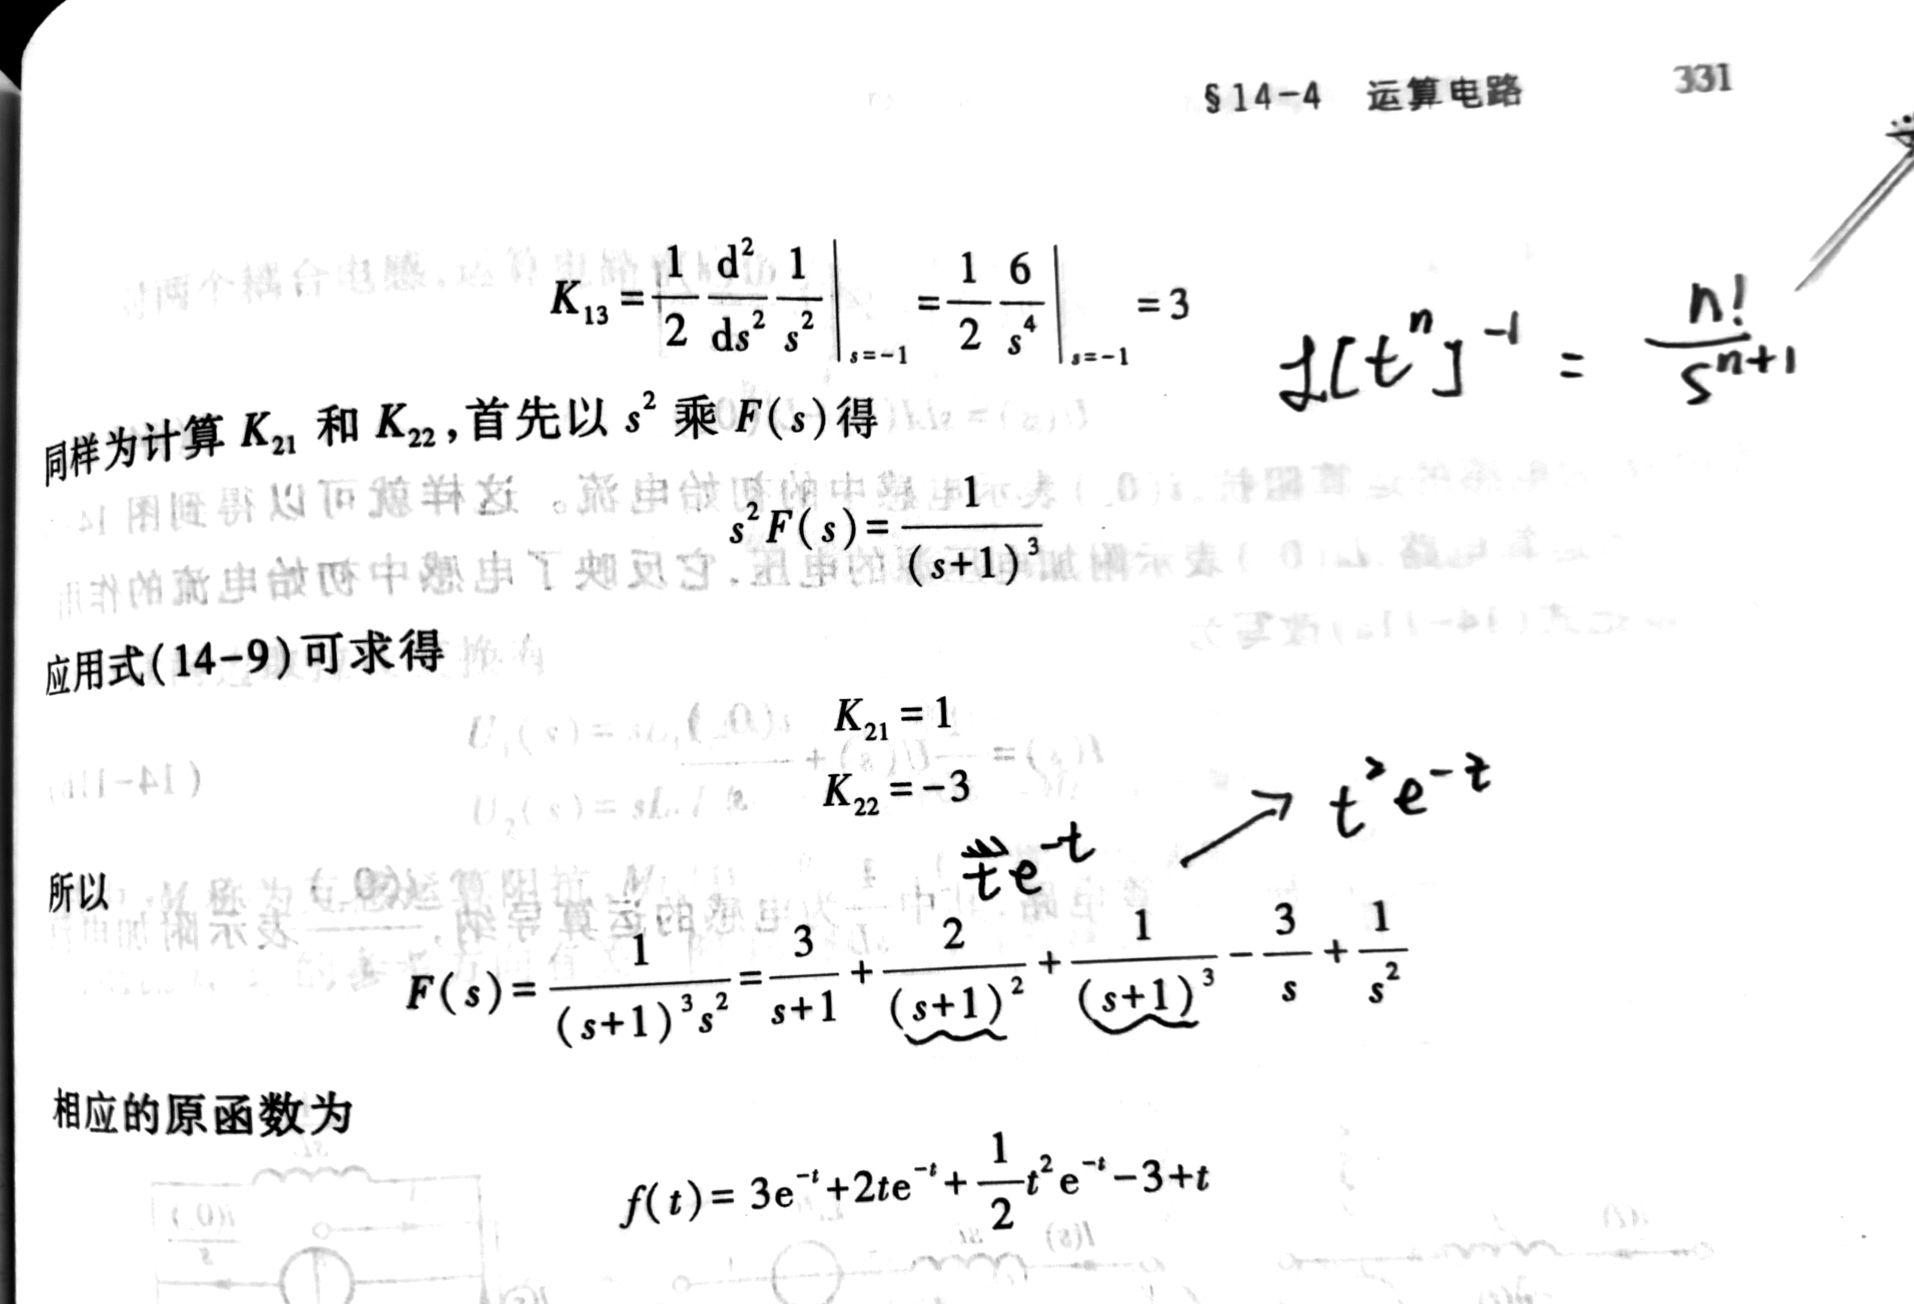 §14-4 运算电路 331
K₁₃ = 1/2 d²/ds² 1/s² |ₛ₌₋₁ = 1/2 6/s⁴ |ₛ₌₋₁ = 3
ℒ[tⁿ]⁻¹ = n!/sⁿ⁺¹
同样为计算 K₂₁ 和 K₂₂,首先以 s² 乘 F(s)得
s²F(s) = 1/(s+1)³
应用式(14-9)可求得
K₂₁ = 1
K₂₂ = -3
t²e⁻ᵗ
te⁻ᵗ
所以
F(s) = 1/((s+1)³s²) = 3/(s+1) + 2/(s+1)² + 1/(s+1)³ - 3/s + 1/s²
相应的原函数为
f(t) = 3e⁻ᵗ+2te⁻ᵗ+1/2 t²e⁻ᵗ-3+t